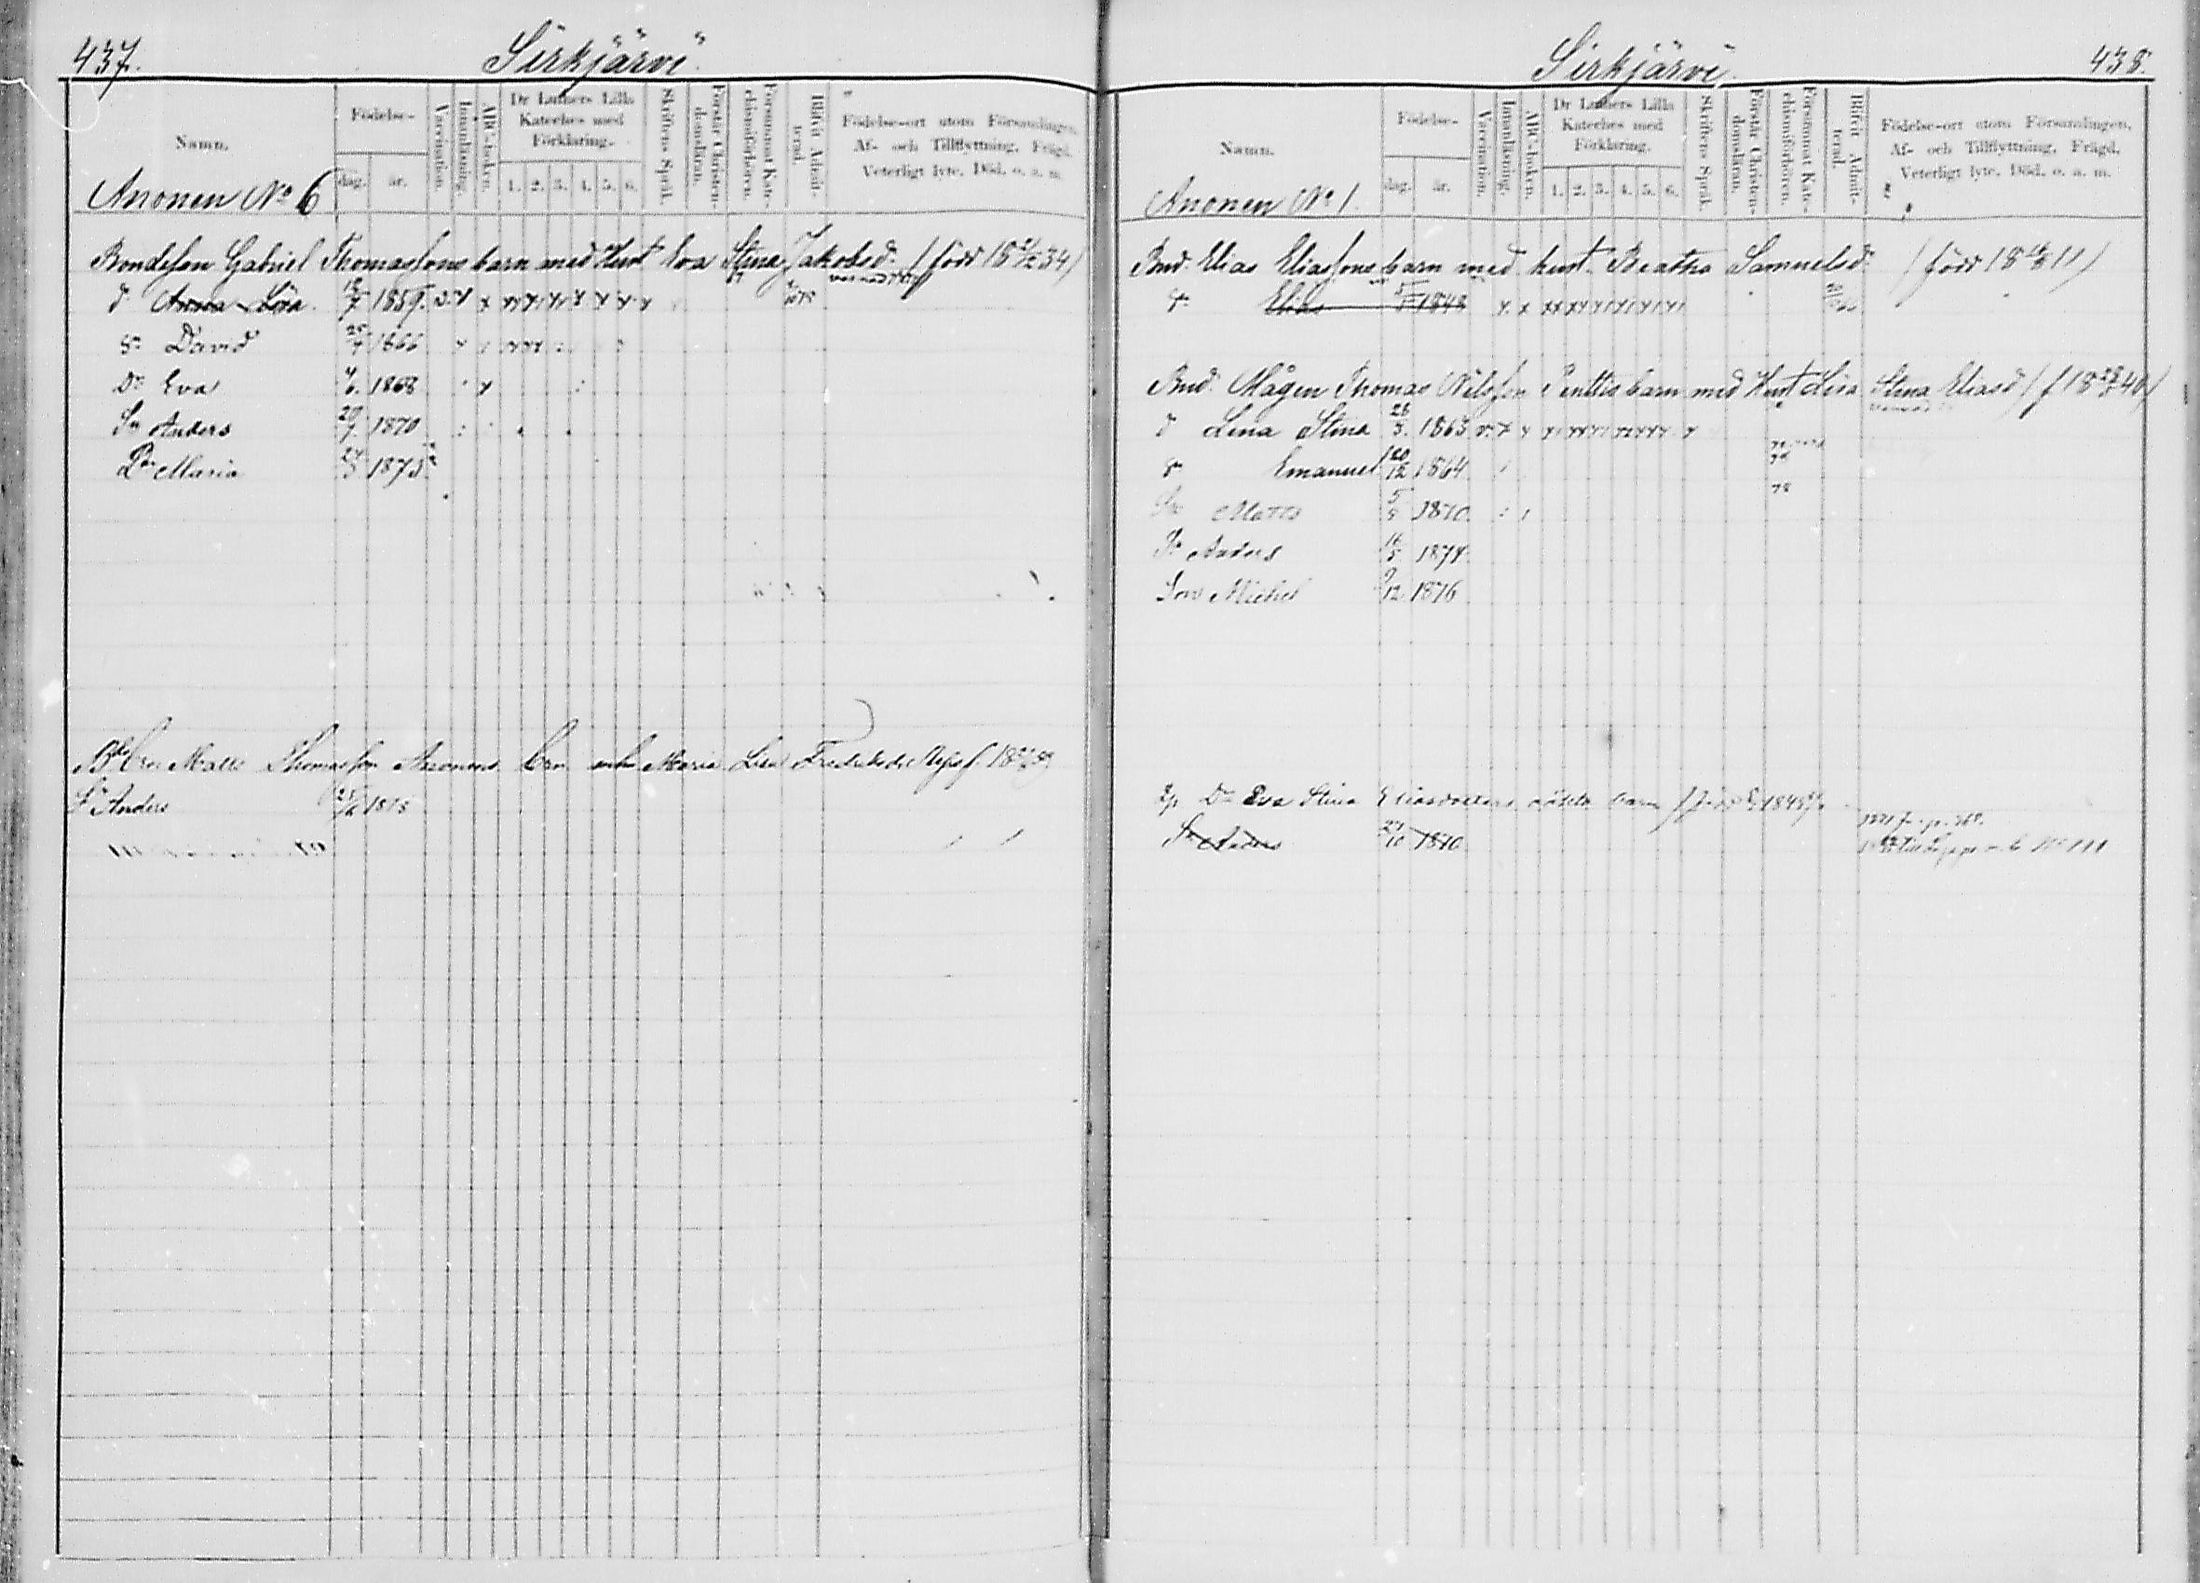 437.
Sirkjärvi
Namn.
Födelse-
dag.
år.
Vaccination.
Innanläsning.
ABC-boken.
Dr Luthers Lilla
Kateches med
Förklaring.
1. 2. 3. 4. 5. 6.
Skriftens Språk.
Förstår Christen-
domsläran.
Försummat Kate-
chismiförhören.
Blifvit Admit-
terad.
Födelse-ort utom Församlingen,
Af- och Tillflyttning, Frägd,
Veterligt lyte, Död, o. a. m.
Anonen No 6
Bondeson Gabriel Thomassons barn med Hust Eva Stina Jakobsd. (född 18 34)
d Anna Lisa 18/7 1859.
Sn David 25/7 1866
Dr Eva 4/6 1868
Sn Anders 20/7 1870
Dr Maria 1875
Matts Thomasson Anonens barn Maria Lisa
Sn Anders
438.
Sirkjärvi
Namn.
Födelse-
dag.
år.
Vaccination.
Innanläsning.
ABC-boken.
Dr Luthers Lilla
Kateches med
Förklaring.
1. 2. 3. 4. 5. 6.
Skriftens Språk.
Förstår Christen-
domsläran.
Försummat Kate-
chismiförhören.
Blifvit Admit-
terad.
Födelse-ort utom Församlingen,
Af- och Tillflyttning, Frägd,
Veterligt lyte, Död, o. a. m.
Anonen No 1.
Bnd. Elias Eliassons barn med hust. Beatha Samuelsd. (född 18 11)
Elias 1848
Bnd. Mågen Thomas Nilsson Penttis barn med Hust Lisa Stina Eliasd (f 18 40)
d Lena Stina 1863
Sn Emanuel 20/12 1864
Sn Matts 5/5 1870
Sn Anders 16/5 1874
Son Michel 9/12 1876
Dr Eva Stina Eliasdotters oäkta barn
Sn Anders 1870